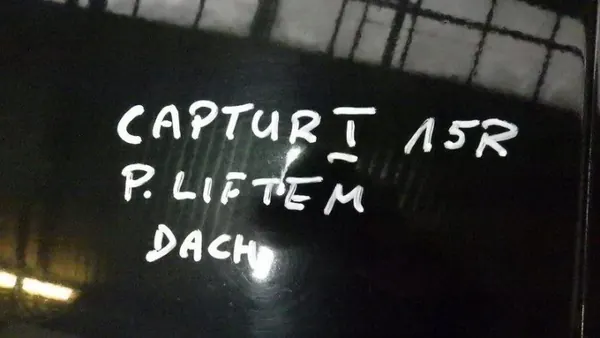 CAPTUR I 15R
P. LIFTEM
DACH